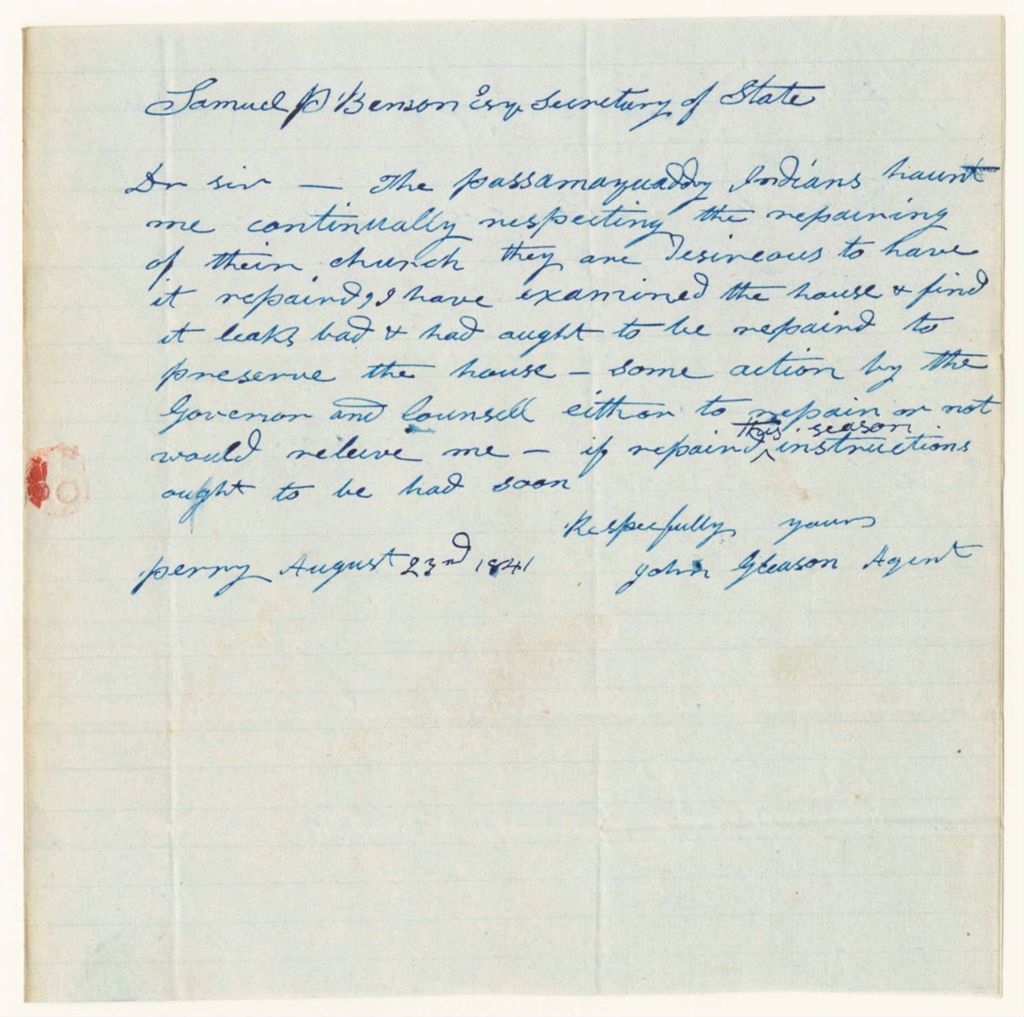 Samuel P Benson Esqr Secretary of State
Dr sir — The passamaquaddy Indians haunt
me continually respecting the repairing
of their church they are desireous to have
it repaird, I have examined the house & find
it leaks bad & had aught to be repaird to
preserve the house – some action by the
Governor and Counsell either to repair or not
would releive me – if repaird ^ this season instructions
aught to be had soon
Respecfully yours
perry August 23rd 1841 John Gleason Agent